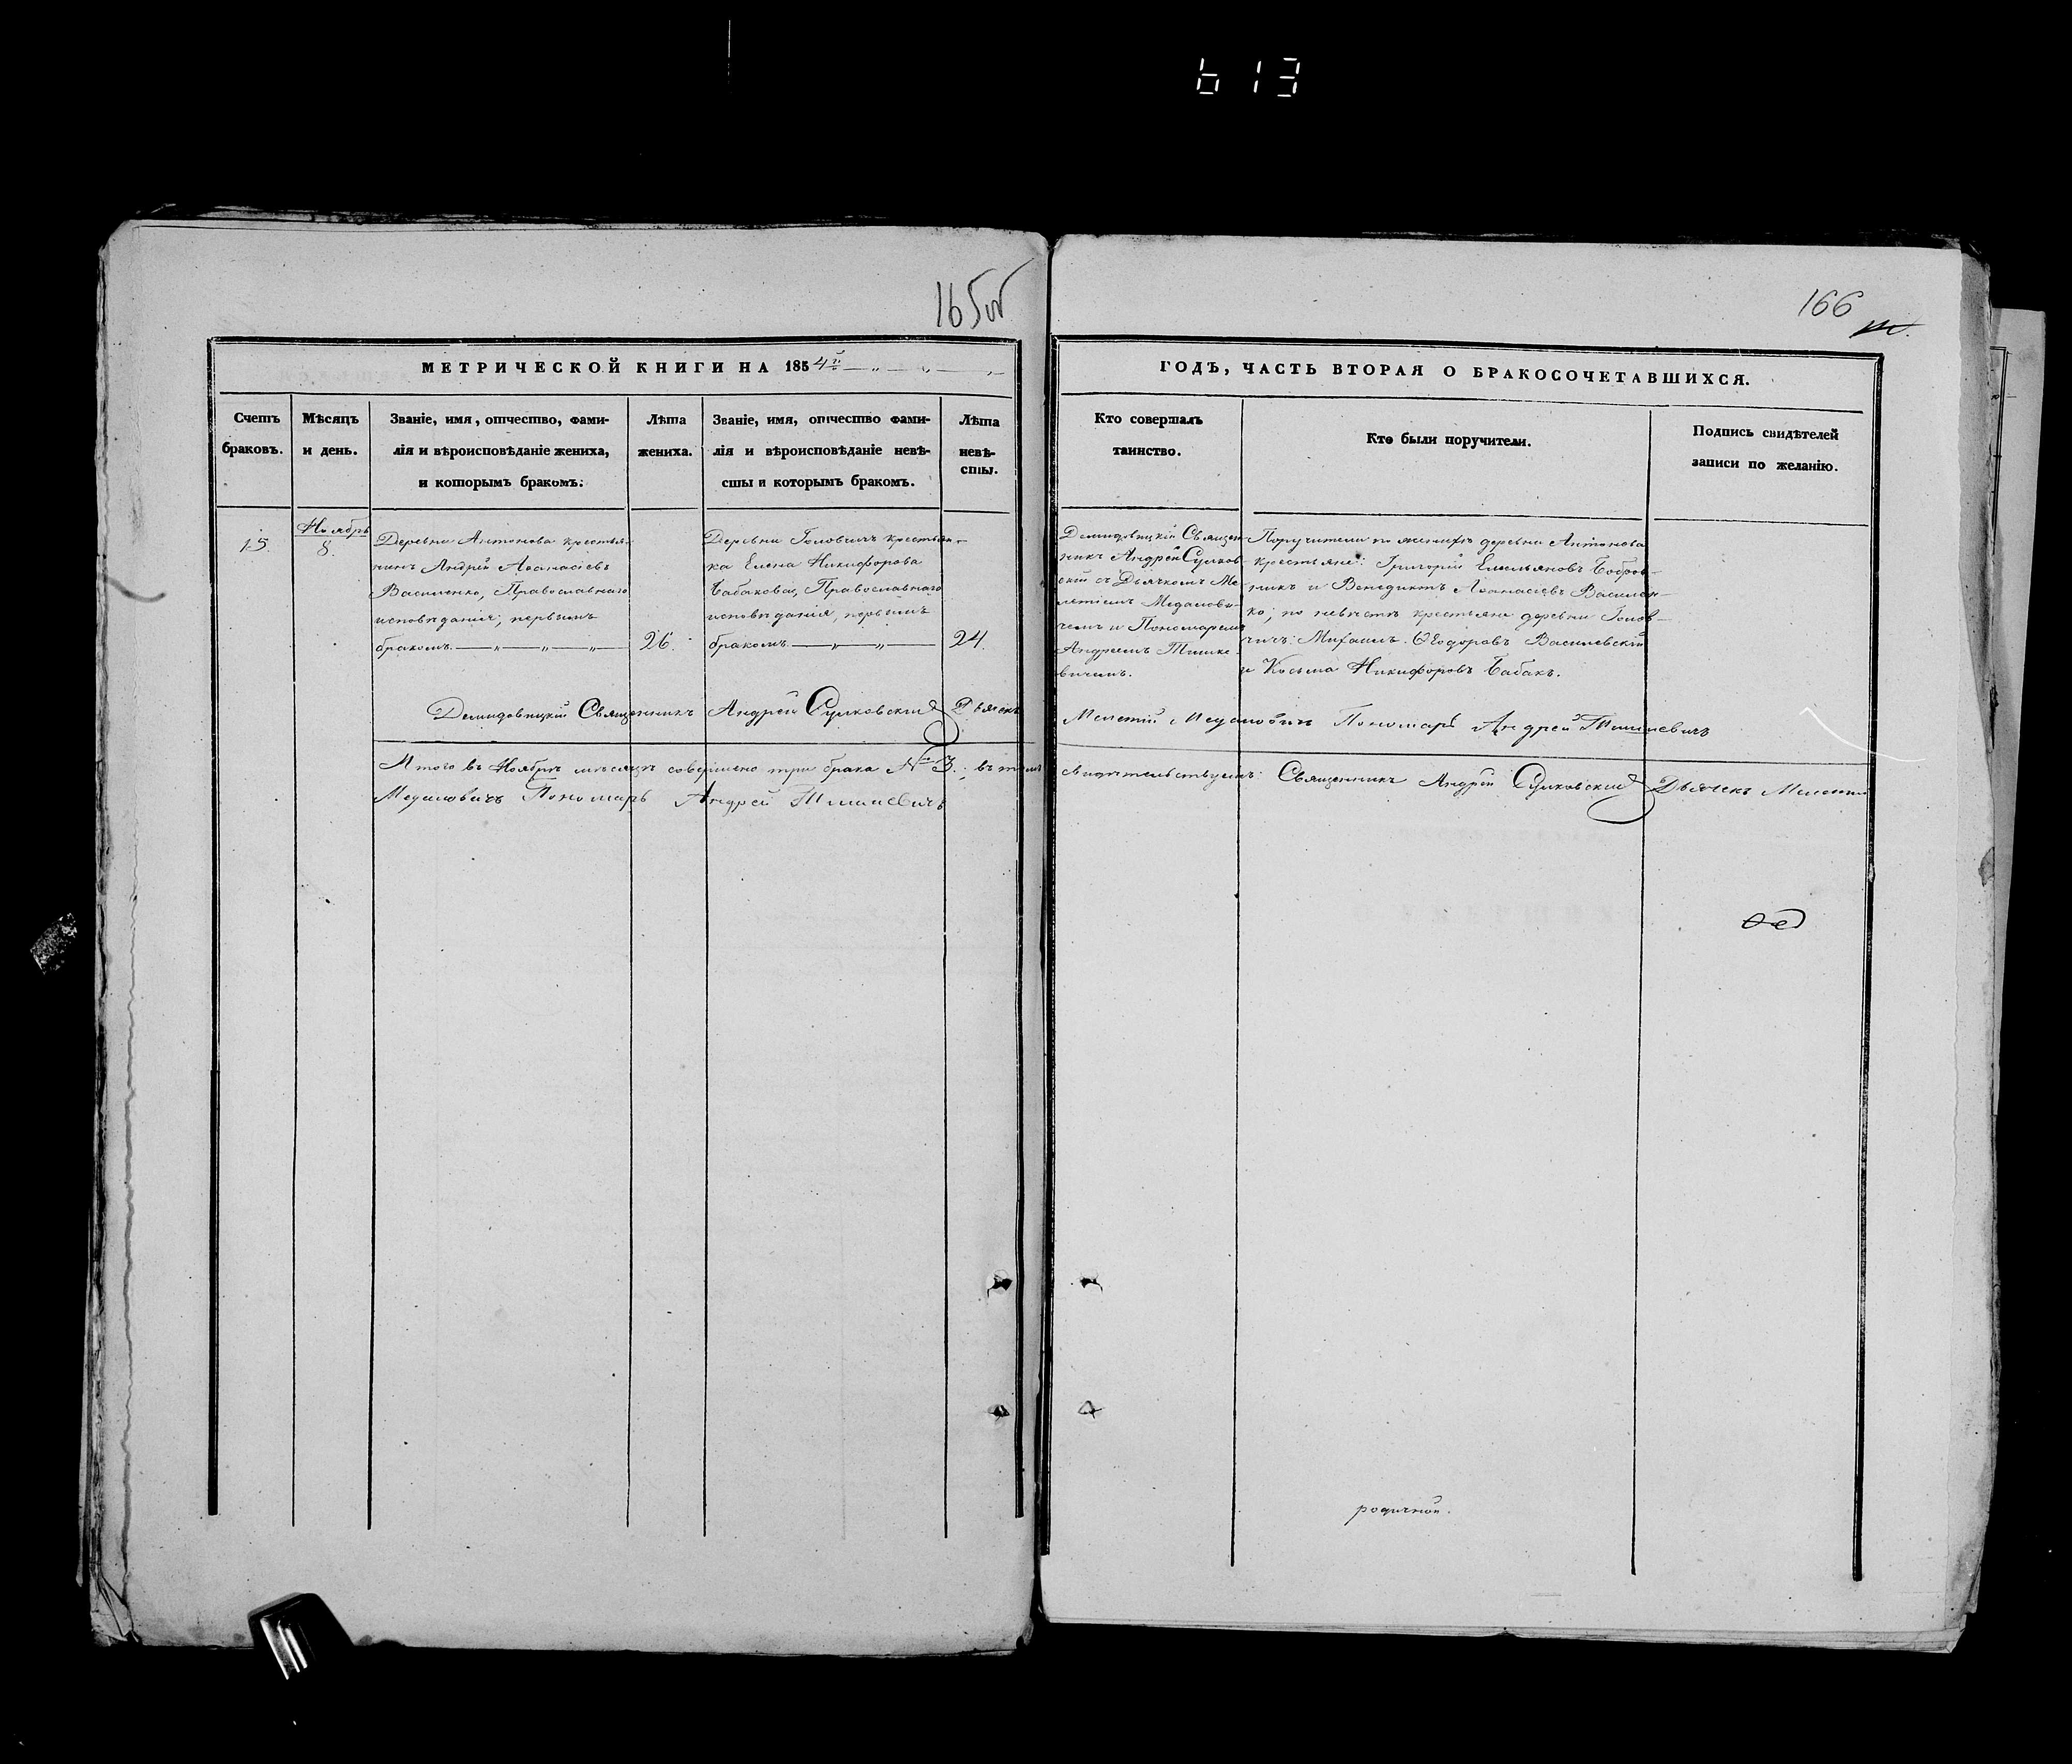 613
165об
166
МЕТРИЧЕСКОЙ КНИГИ НА 1854й
ГОДЪ, ЧАСТЬ ВТОРАЯ О БРАКОСОЧЕТАВШИХСЯ.
Счетъ
браковъ.
Мѣсяцъ
и день.
Званіе, имя, отчество, фами-
лія и вѣроисповѣданіе жениха,
и которымъ бракомъ:
Лѣта
жениха.
Званіе, имя, отчество фами-
лія и вѣроисповѣданіе невѣ-
сты и которымъ бракомъ.
Лѣта
невѣ-
сты.
Кто совершалъ
таинство.
Кто были поручители.
Подпись свидѣтелей
записи по желанію.
15.
Ноябрь
8.
Деревни Антонова крестья-
нинъ Андрей Аѳанасіевъ
Василенко, Православнаго
исповѣданія, первымъ
бракомъ.
26.
Деревни Головчичъ крестьян-
ка Елена Никифорова
Бабакова, Православнаго
исповѣданія, первымъ
бракомъ.
24.
Демидовицкій Священ-
никъ Андрей Сулков-
скій съ Дьячкомъ Ме-
летіемъ
чемъ и Пономаремъ
Андреемъ Тишке-
вичемъ.
Поручители по женихѣ деревни Антонова
крестьяне: Григорій Емельяновъ Бобров-
никъ и Венедиктъ Аѳанасіевъ Василен-
ко; по невѣстѣ крестьяне деревни Голов-
чичъ: Михаилъ Ѳеодоровъ Василевскій
и Косьма Никифоровъ Бабакъ.
Демидовицкій Священникъ Андрей Сулковскій Дьячекъ
Мелетій Пономарь Андрей Тишкевичъ
Итого въ Ноябрѣ мѣсяцѣ совершено три брака № 3. въ томъ
свидѣтельствуемъ: Священникъ Андрей Сулковскій Дьячекъ Мелетій
Пономарь Андрей Тишкевичъ